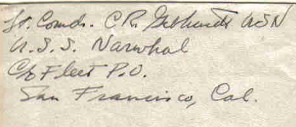 Lt. Comdr. C.R. Gebhardt USN
U.S.S. Narwhal
C/o Fleet P.O.
San Francisco, Cal.